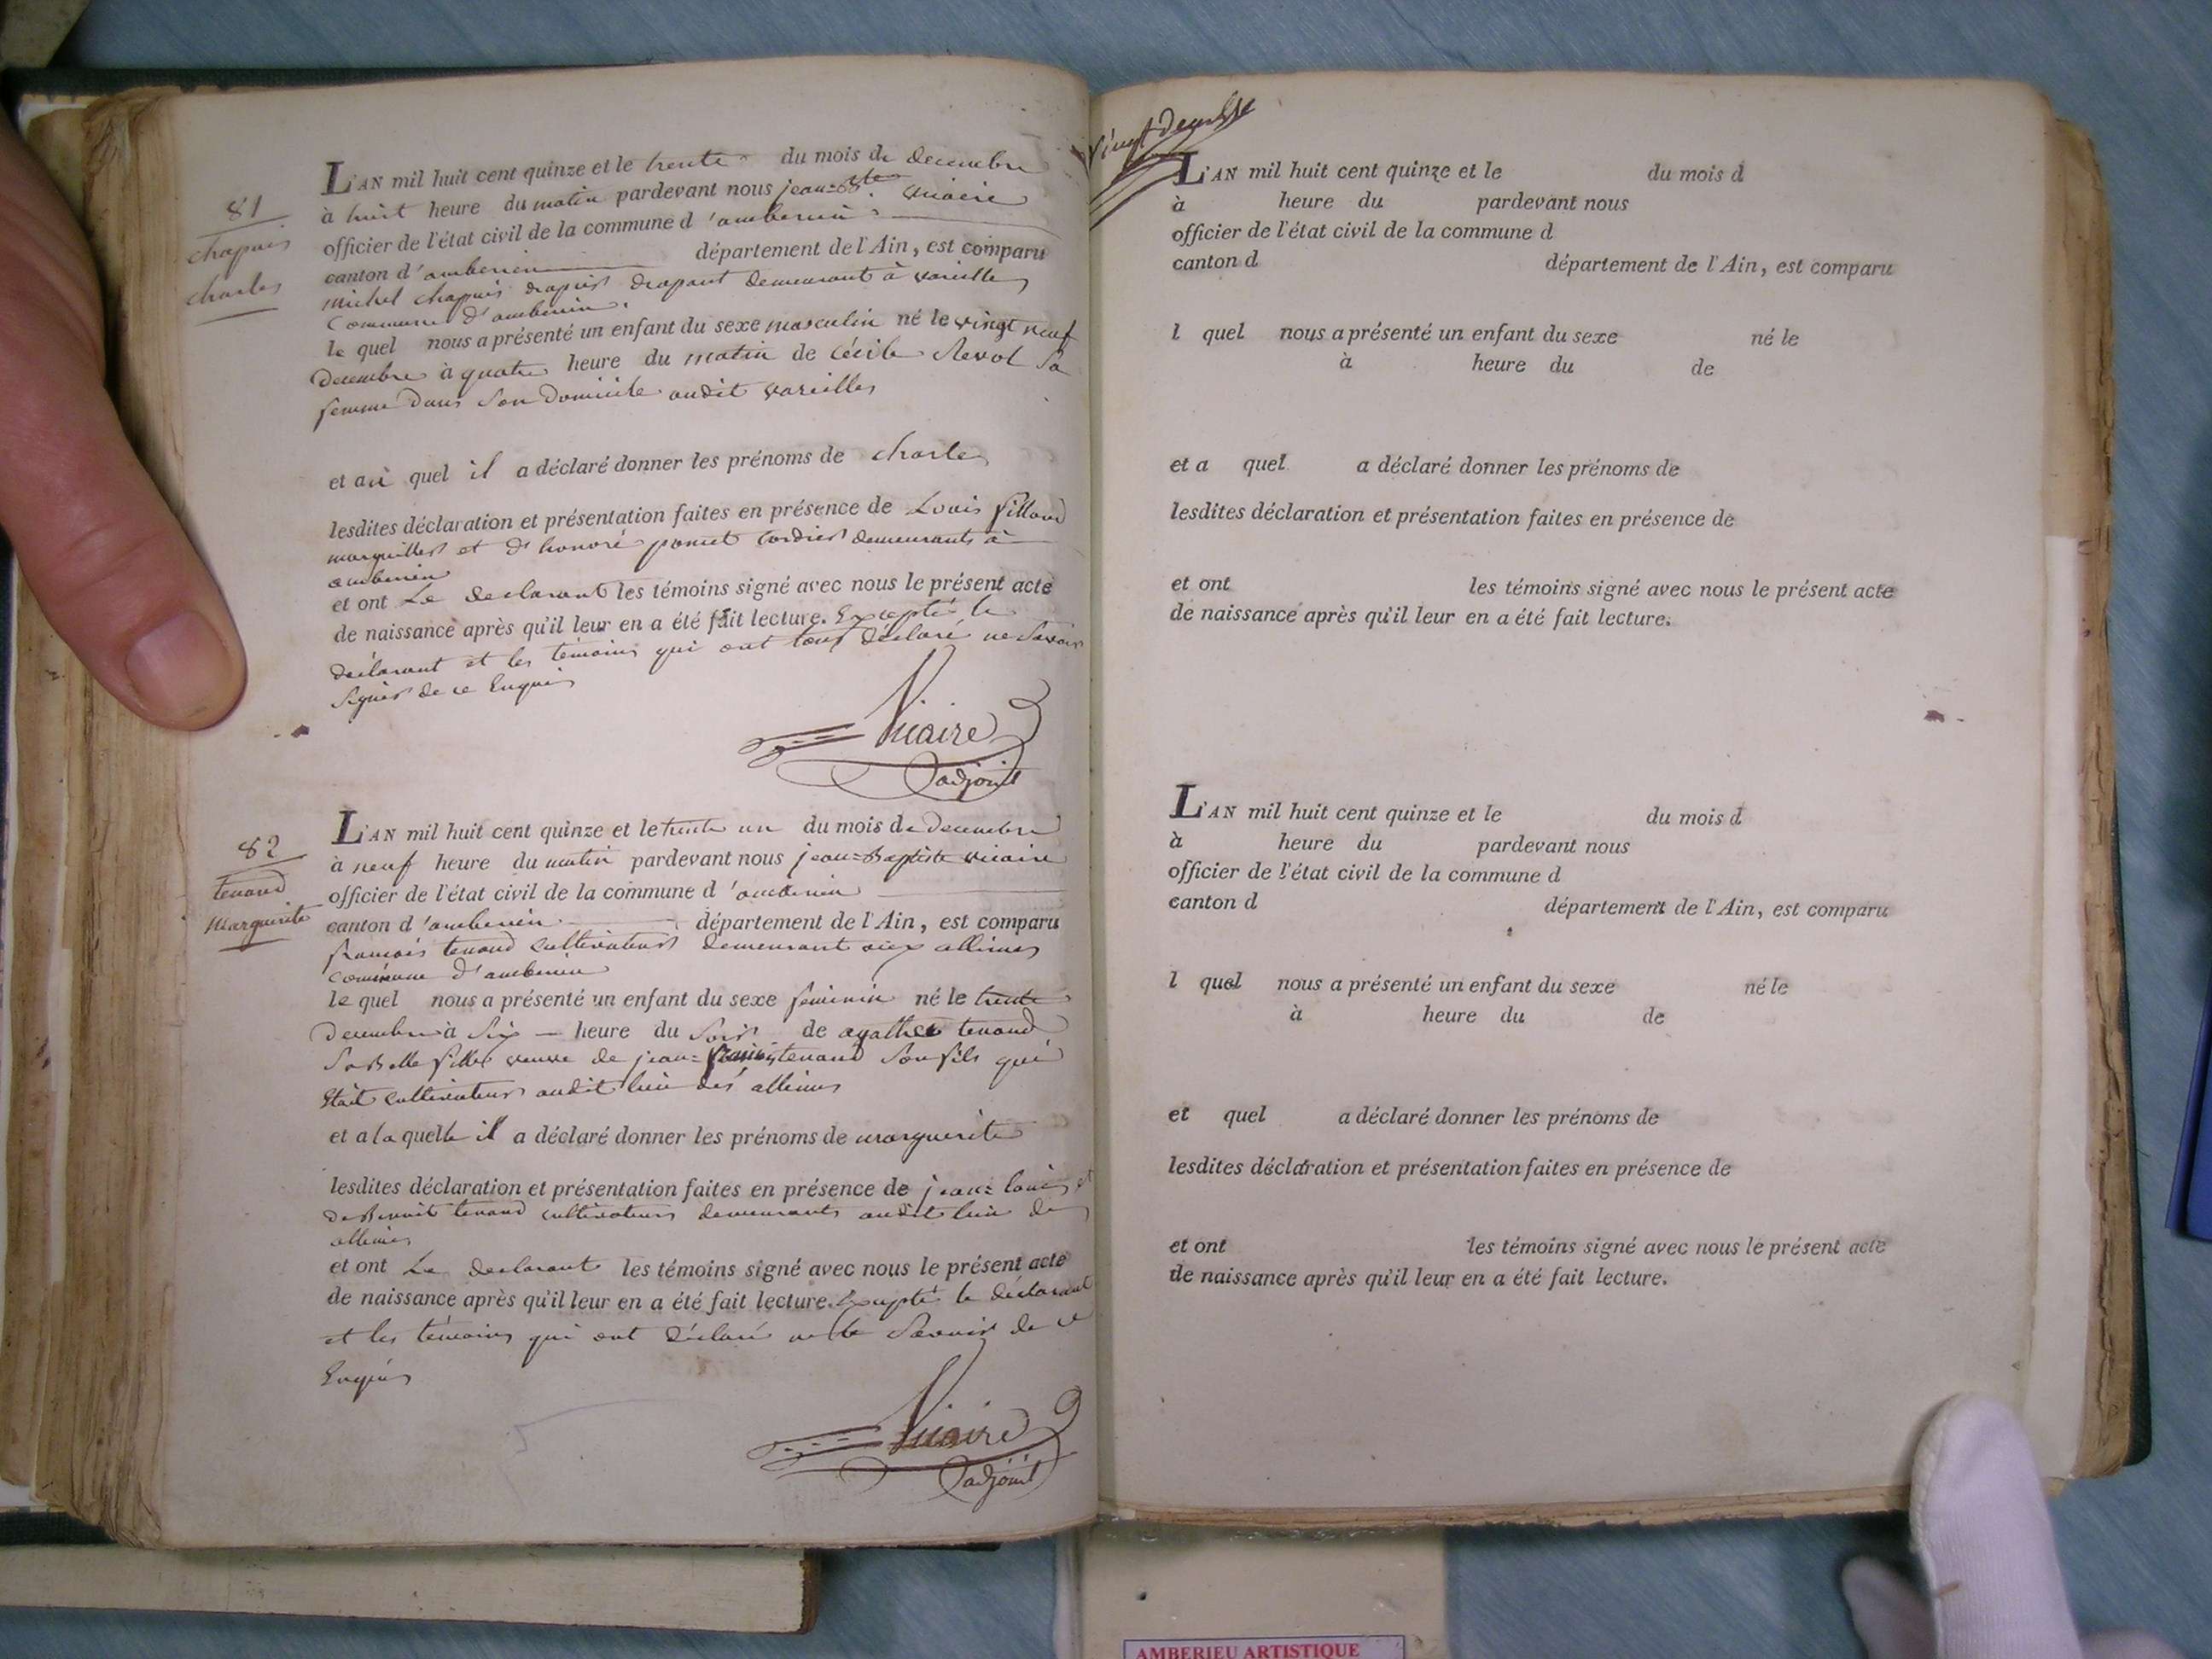 81
chapuis
charles
L'AN mil huit cent quinze et le trente du mois de decembre
à huit heure du matin pardevant nous jean-Bte vicaire
officier de l'état civil de la commune d'amberieu
canton d'amberieu département de l'Ain, est comparu
michel chapuis drapier drapant demeurant à vareilles
commune d'amberieu
le quel nous a présenté un enfant du sexe masculin né le vingt neuf
decembre à quatre heure du matin de cécile Revol sa
femme dans son domicile audit vareilles
et au quel il a déclaré donner les prénoms de charles
lesdites déclaration et présentation faites en présence de Louis
marguiller et d'honoré poncet cordier demeurants à
amberieu
et ont Le declarant les témoins signé avec nous le présent acte
de naissance après qu'il leur en a été fait lecture. Excepté le
déclarant et les témoins qui ont tous déclaré ne savoir
signer de ce Enquis
Vicaire
adjoint
82
tenand
Marguerite
L'AN mil huit cent quinze et le trente un du mois de decembre
à neuf heure du matin pardevant nous jean=Baptiste vicaire
officier de l'état civil de la commune d'amberieu
canton d'amberieu département de l'Ain, est comparu
francois tenand cultivateur demeurant aux allimes
commune d'amberieu
le quel nous a présenté un enfant du sexe feminin né le trente
decembre à Six heure du Soir de agathe tenand
sa Belle fille veuve de jean=francois tenand son fils qui
était cultivateur audit lieu des allimes
et a la quelle il a déclaré donner les prénoms de marguerite
lesdites déclaration et présentation faites en présence de jean=louis et
de Benoit tenand cultivateurs demeurants audit lieu des
allimes
et ont Le declarant les témoins signé avec nous le présent acte
de naissance après qu'il leur en a été fait lecture. Excepté le déclarant
et les témoins qui ont déclaré ne le savoir de ce
Enquis
Vicaire
adjoint
vingt deux
L'AN mil huit cent quinze et le du mois d
à heure du pardevant nous
officier de l'état civil de la commune d
canton d département de l'Ain, est comparu
l quel nous a présenté un enfant du sexe né le
à heure du de
et a quel a déclaré donner les prénoms de
lesdites déclaration et présentation faites en présence de
et ont les témoins signé avec nous le présent acte
de naissance après qu'il leur en a été fait lecture.
L'AN mil huit cent quinze et le du mois d
à heure du pardevant nous
officier de l'état civil de la commune d
canton d département de l'Ain, est comparu
l quel nous a présenté un enfant du sexe né le
à heure du de
et quel a déclaré donner les prénoms de
lesdites déclaration et présentation faites en présence de
et ont les témoins signé avec nous le présent acte
de naissance après qu'il leur en a été fait lecture.
AMBERIEU ARTISTIQUE